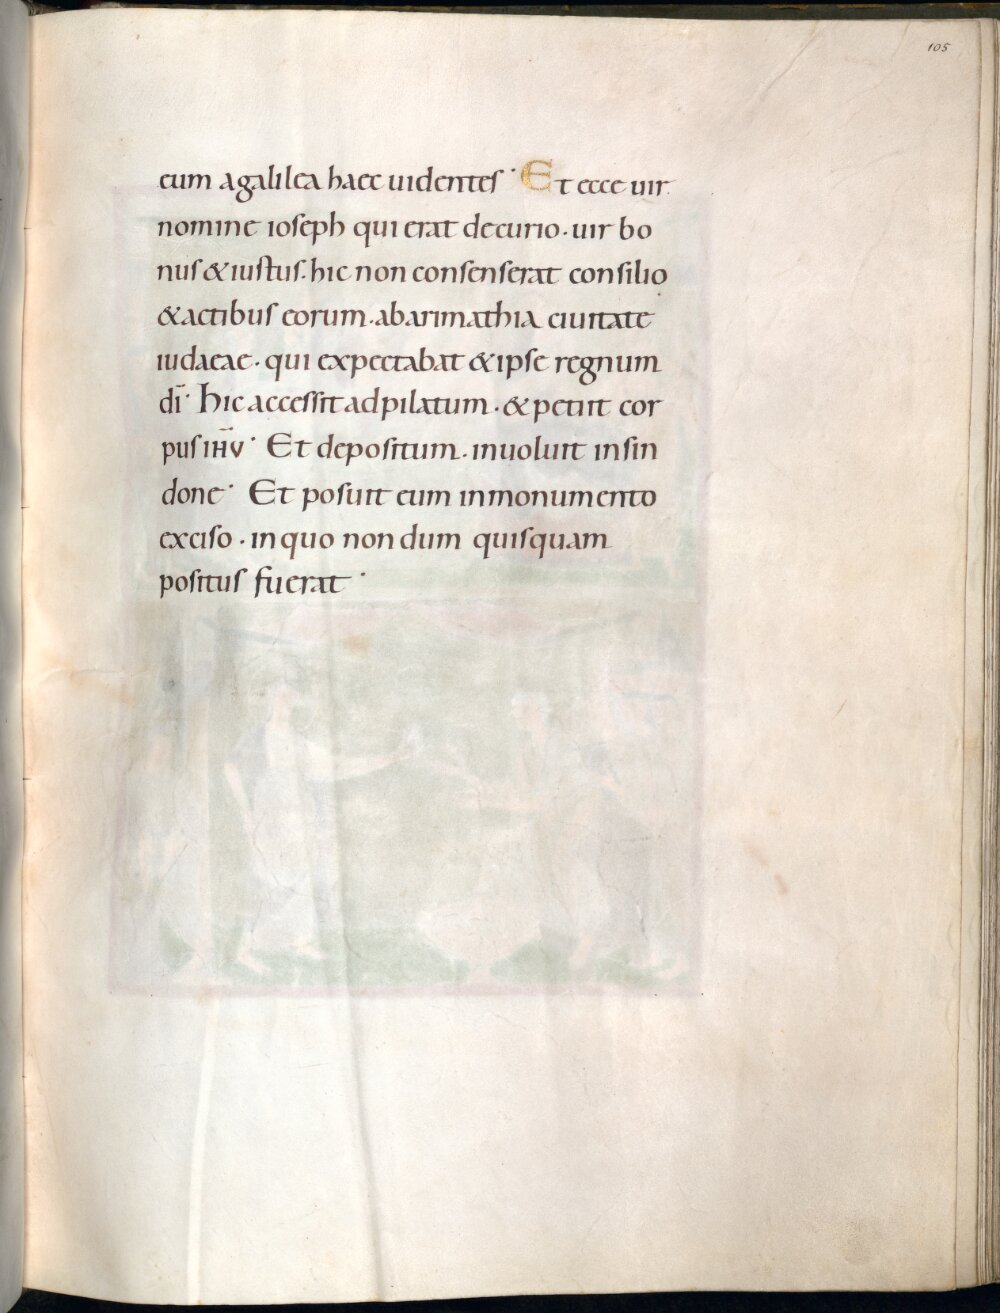 105
eum agalilea haec uidentes · Et ecce uir
nomine ioseph qui erat decurio · uir bo
nus & iustus · hic non consenserat consilio
& actibus eorum · abarimathia ciuitate
iudaeae · qui expectabat & ipse regnum
dī · hic accessit adpilatum · & petiit cor
pus ihū · Et depositum · inuoluit insin
done · Et posuit eum inmonumento
exciso · in quo non dum quisquam
positus fuerat ·